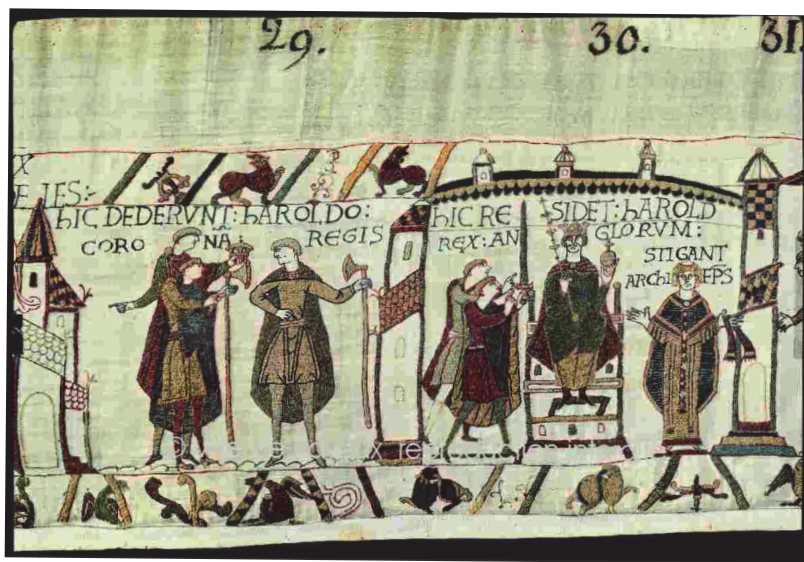 29. 30. 31
X
E IES:
hIC DEDERVNT: hAROLDO:
CORO NA: REGIS
hIC RE SIDET: hAROLD
REX: AN GLORVM:
STIGANT
ARChI EPS